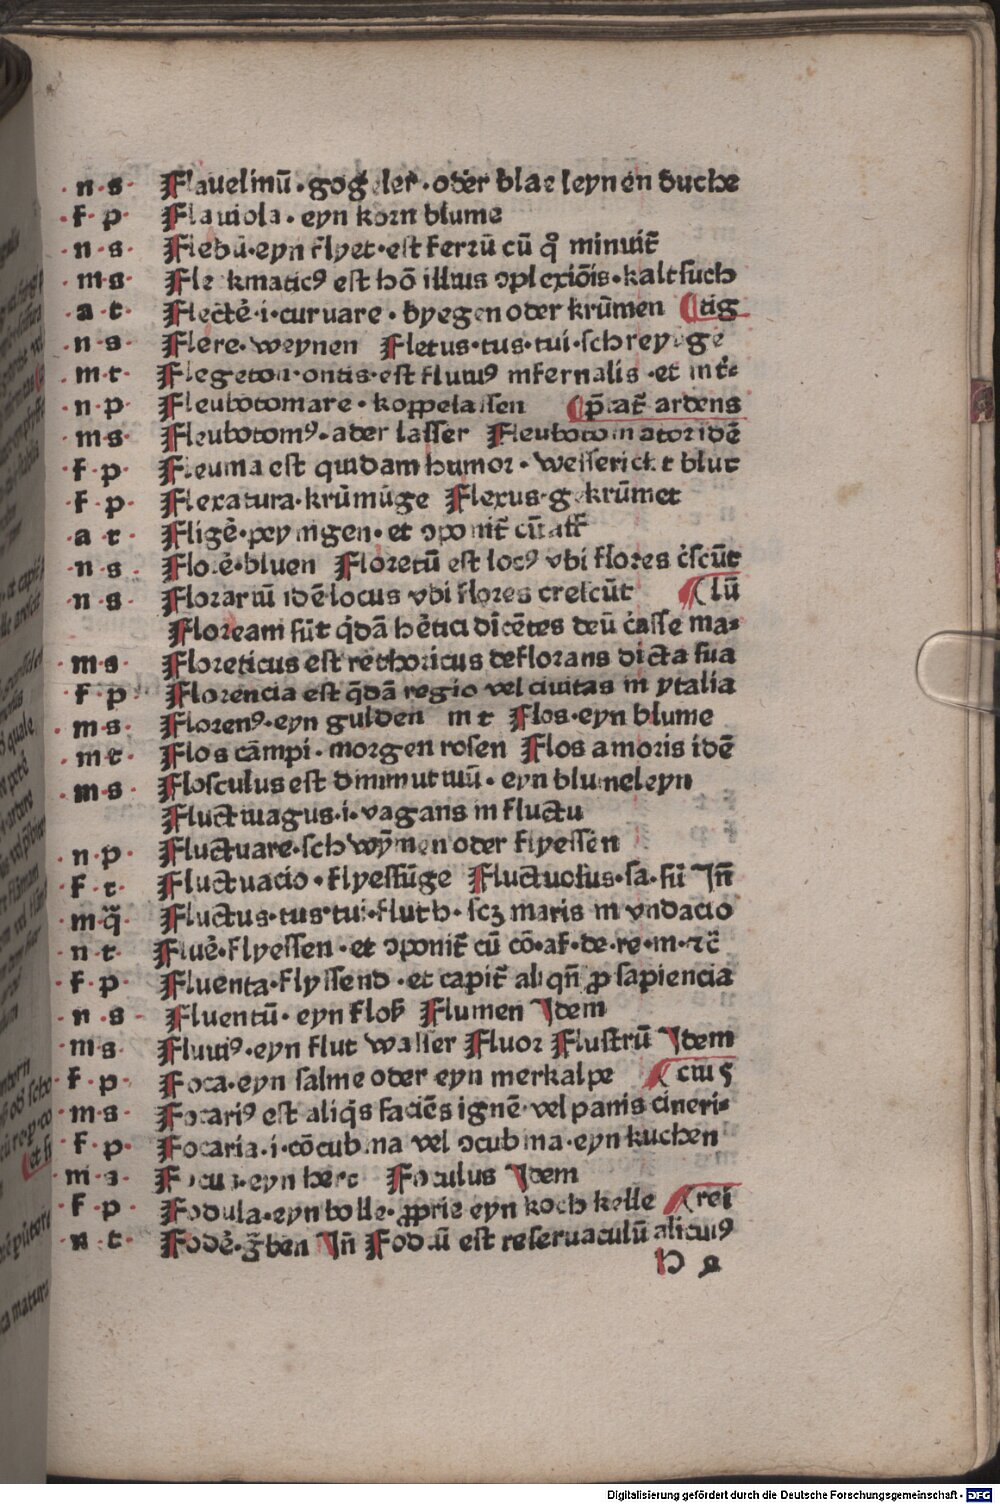 ·n·s· Flauelinū·gogeler·oder blae leynen duche
·f·p· Flauiola·eyn korn blume
·n·s· Flebū·eyn flyet·est ferrū cū qͦ minuit̄
·m·s· Fleckmaticꝰ est hō illius ↄplexiōis·kalt such
·a·t· Flectē·i·curuare·byegen oder krūmen ⸿tig
·n·s· Flere·weynen Fletus·tus·tui·schreyūge
·m·t· Flegeton·ontis·est fluuiꝰ infernalis·et int̄⸗
·n·p· Fleubotomare·koppelassen ⸿p̄tat̄ ardens
·m·s· Fleubotomꝰ·ader lasser Fleubotomator idē
·f·p· Fleuma est quidam humor·wesserickt blut
·f·p· Flexatura·krūmūge Flexus·gekrūmet
·a·t· Fligē·peyningen·et ↄponit̄ cū aff̄
·n·s· Florē·bluen Floretū est locꝰ vbi flores c̄scūt
·n·s· Florariū idē locus vbi flores crescūt ⸿lū
Floream sūt q̄dā hētici dicētes deū c̄asse ma⸗
·m·s· Floreticus est rethoricus deflorans dicta sua
·f·p· Florencia est q̄dā regio vel ciuitas in ytalia
·m·s· Florenꝰ·eyn gulden m t Flos·eyn blume
·m·t· Flos cāmpi·morgen rosen Flos amoris idē
·m·s· Flosculus est diminutiuū·eyn blumeleyn
Fluctiuagus·i·vagans in fluctu
·n·p· Fluctuare·schwȳmen oder flyessen
·f·t· Fluctuacio·flyessūge Fluctuosus·sa·sū Jn̄
·m·q̄· Fluctus·tus·tui·fluth·scꝫ maris inundacio
·n·t· Fluē·flyessen·et ↄponit̄ cū cō·af·de·re·in·⁊c̄
·f·p· Fluenta·flyssend·et capit̄ aliqn̄ ꝓ sapiencia
·n·s· Fluentū·eyn floß Flumen Jdem
·m·s· Fluuiꝰ·eyn flut wasser Fluor Flustrū Jdem
·f·p· Foca·eyn salme oder eyn merkalpe ⸿ciuς
·m·s· Focariꝰ est aliq̄s faciēs ignē·vel panis cineri⸗
·f·p· Focaria·i·cōcubina vel ↄcubina·eyn kuchen
·m·s· Focus·eyn hert Foculus Jdem
·f·p· Fodula·eyn bolle·ꝓprie eyn koch kelle ⸿rei
·n·t· Fodē·g̃ben Jn̄ Fodiū est reseruaculū alicuiꝰ
h 2
Digitalisierung gefördert durch die Deutsche Forschungsgemeinschaft - DFG